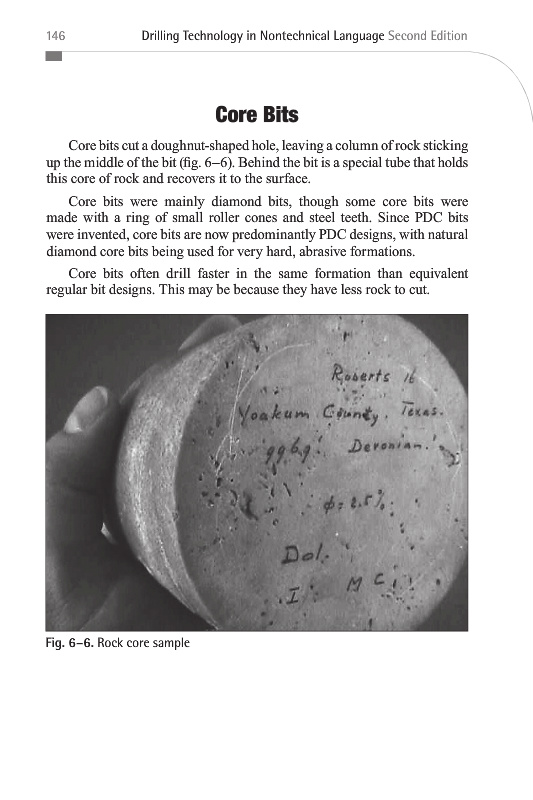 146
Drilling Technology in Nontechnical Language Second Edition
Core Bits
Core bits cut a doughnut-shaped hole, leaving a column of rock sticking
up the middle of the bit (fig. 6–6). Behind the bit is a special tube that holds
this core of rock and recovers it to the surface.
Core bits were mainly diamond bits, though some core bits were
made with a ring of small roller cones and steel teeth. Since PDC bits
were invented, core bits are now predominantly PDC designs, with natural
diamond core bits being used for very hard, abrasive formations.
Core bits often drill faster in the same formation than equivalent
regular bit designs. This may be because they have less rock to cut.
Roberts
Yoakum County, Texas.
9969' Devonian.
ϕ = 2.5%
Dol.
I M C
Fig. 6–6. Rock core sample